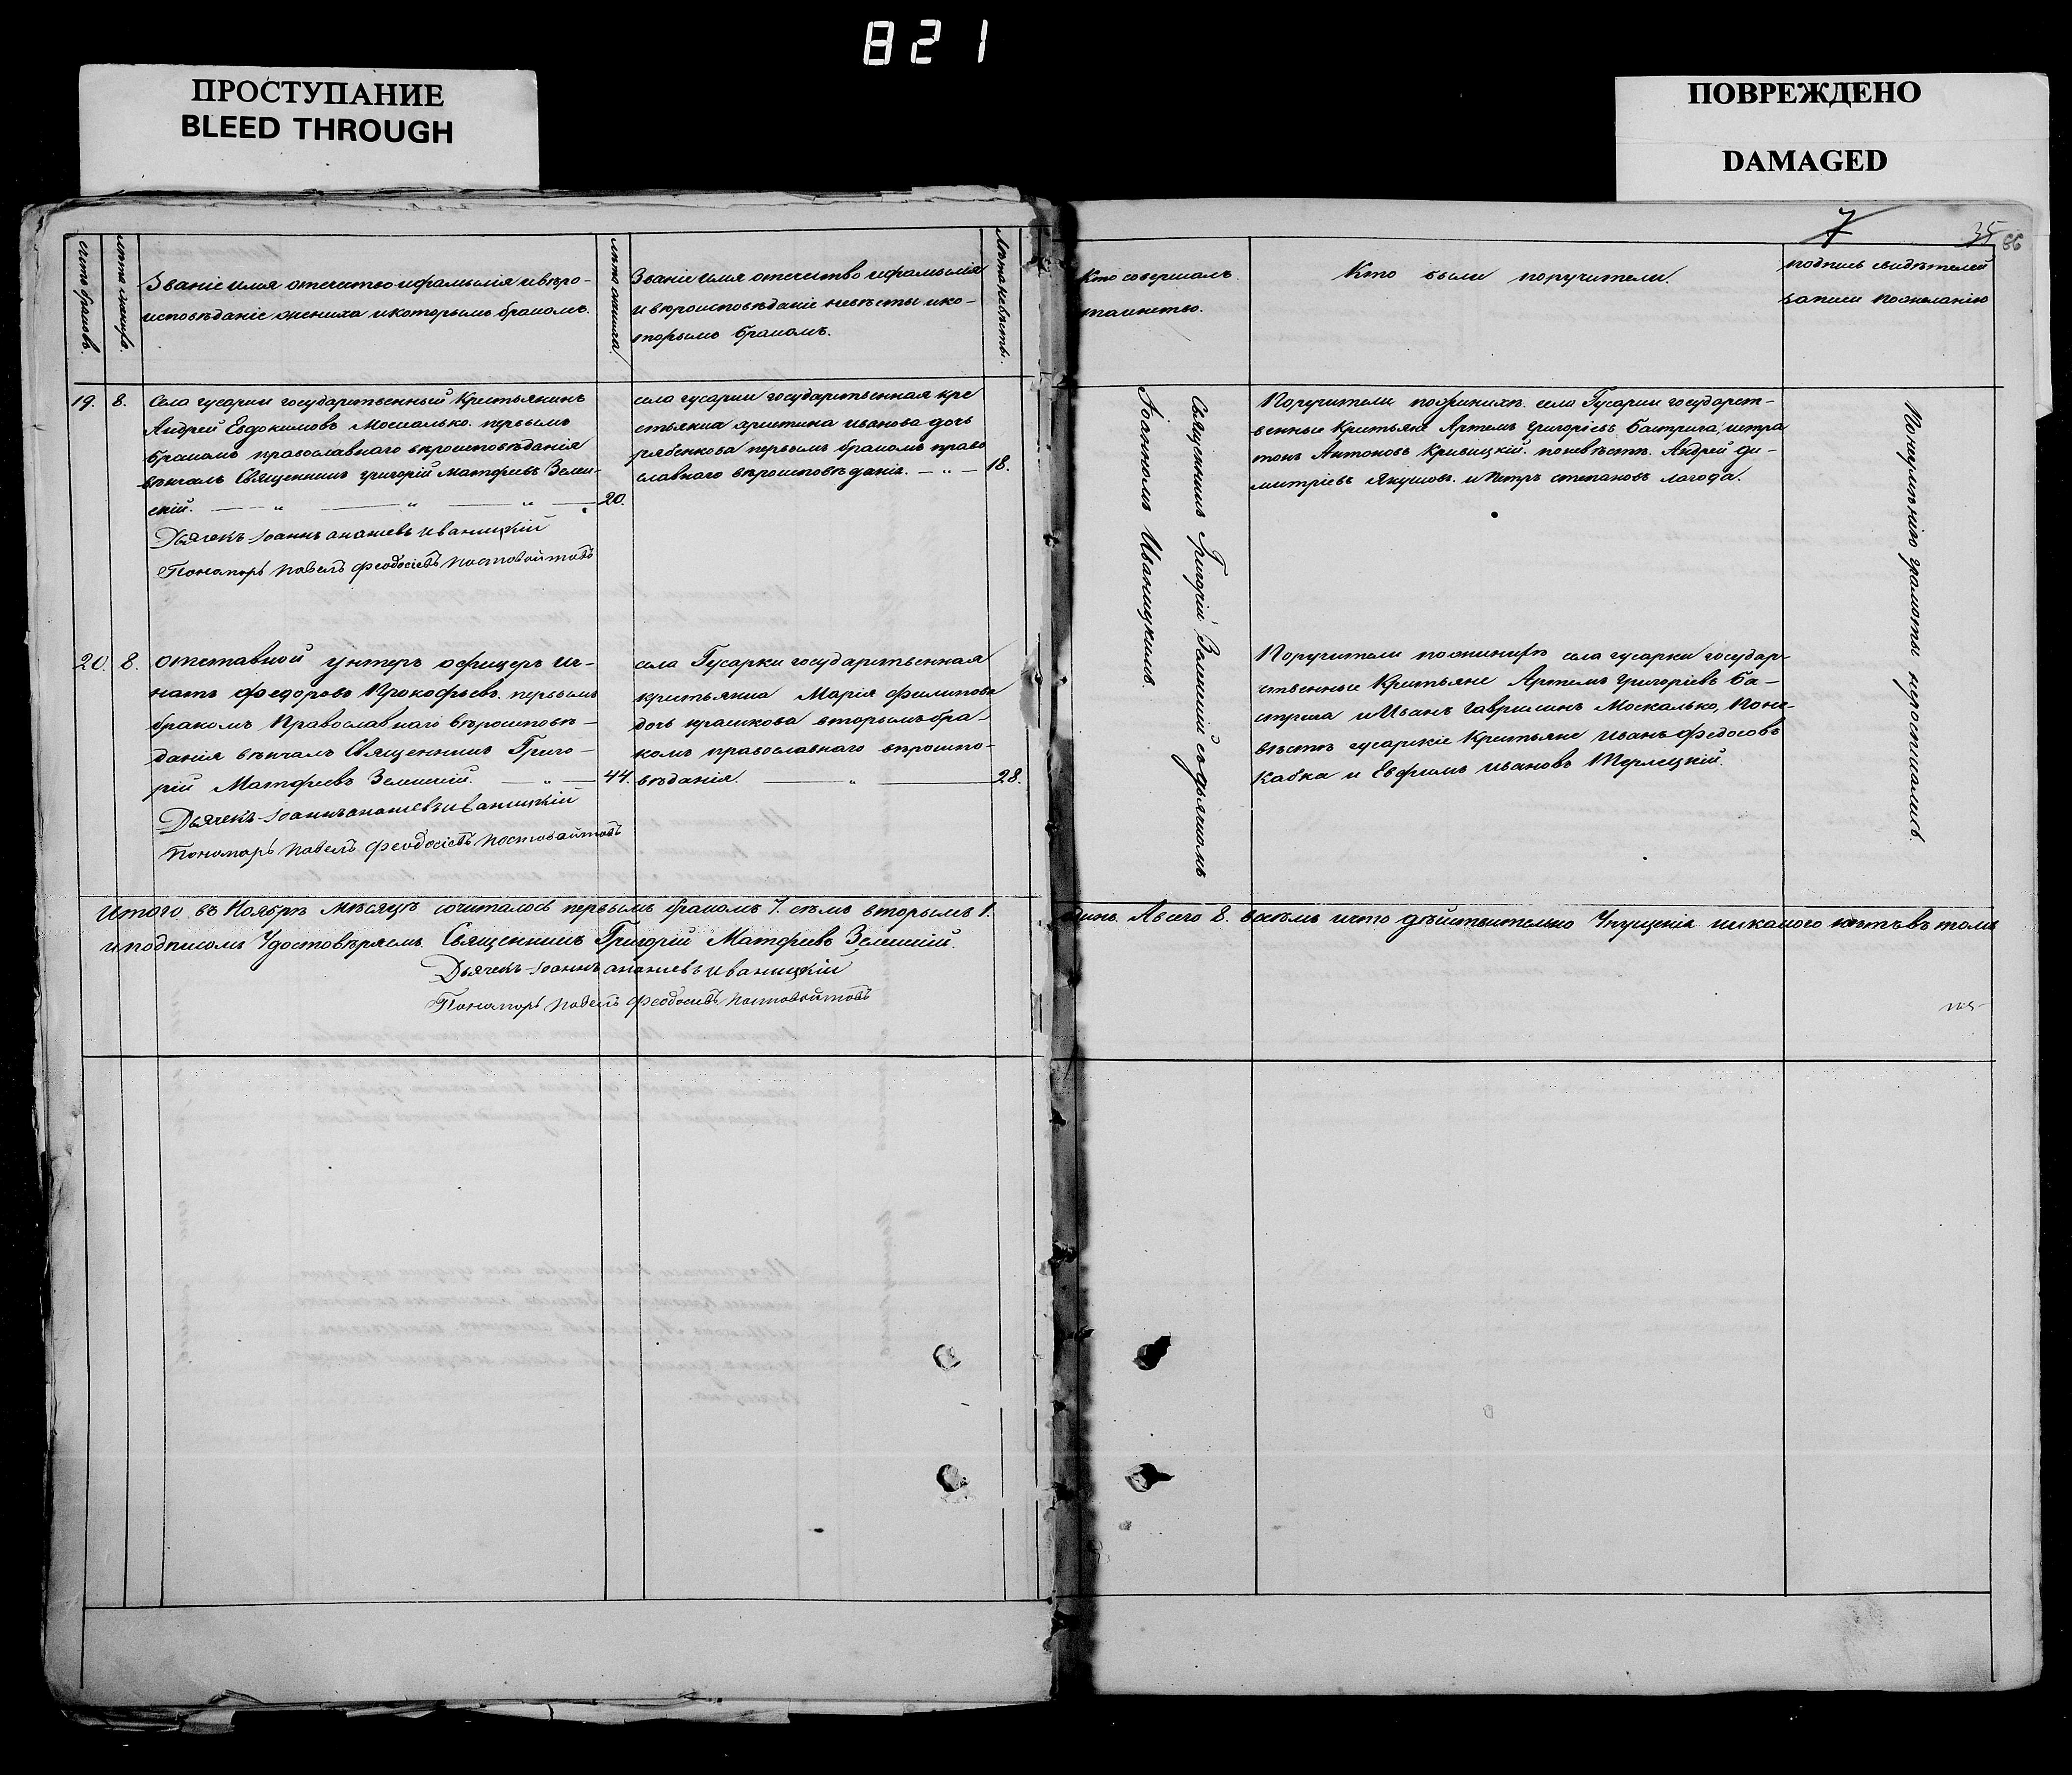 821
ПРОСТУПАНИЕ
BLEED THROUGH
ПОВРЕЖДЕНО
DAMAGED
7
35
66
счетъ браковъ.
Званіе имя отечество и фамилія и веро-
исповѣданіе жениха и которымъ бракомъ.
лѣта жениха.
Званіе имя отечество и фамилія
и вероисповѣданіе невѣсты и ко-
торымъ бракомъ.
Лѣта невѣсты.
Кто совершалъ
таинство.
Кто были поручители.
подпись свидѣтелей
записи по желанію
19. 8.
Села гусарки государственный Крестьянинъ
Андрей Евдокимовъ Москалько. первымъ
бракомъ православнаго вѣроисповѣданія
вѣнчалъ Священникъ григорій матфеевъ Зелен-
скій. 20.
Дьячекъ Іоаннъ ананіевъ иваницкій
Пономарь павелъ феодосіевъ постовойтовъ
села гусарки государственная кре
стьянка христина иванова дочь
рябенкова первымъ бракомъ право
славнаго вѣроисповѣданія. 18.
Священникъ Григорій Зеленскій съ дьячкомъ
Іоанномъ Иваницкимъ.
Поручители по женихѣ села Гусарки государст-
венные Крестьяне Артемъ григоріевъ Бастрига,
Антоновъ Кривицкій. по невѣстѣ. Андрей ди-
митріевъ Якушовъ. и Петръ степановъ лагода.
По неумѣнію грамоты не росписались.
20. 8.
отставной унтеръ офицеръ иг-
натъ Федоровъ Прокофьевъ. первымъ
бракомъ Православнаго вѣроисповѣ-
данія вѣнчалъ Священникъ Григо-
рій Матфеевъ Зеленскій. 44.
Дьячекъ Іоаннъ ананіевъ иваницкій
Пономарь павелъ феодосіевъ постовойтовъ
села Гусарки государственная
крестьянка Марія Филипова
дочь крашкова вторымъ бра-
комъ православнаго вѣроиспо-
вѣданія. 28.
Поручители по женихѣ села гусарки государ-
ственные Крестьяне Артемъ Григоріевъ Ба-
стрига и Иванъ гавриловъ Москалько, По не-
вѣстѣ гусарскіе Крестьяне иванъ федосовъ
Кабка и Евфимъ ивановъ Терлецкій.
Итого въ Ноябрѣ мѣсяцѣ сочиталось первымъ бракомъ 7. семь вторымъ 1. одинъ. А всего 8. восемь и что дѣйствительно Упущенія никакого нѣтъ въ томъ
и подписомъ Удостовѣряемъ. Священникъ Григорій Матфеевъ Зеленскій.
Дьячекъ Іоаннъ ананіевъ иваницкій
Пономарь павелъ феодосіевъ постовойтовъ